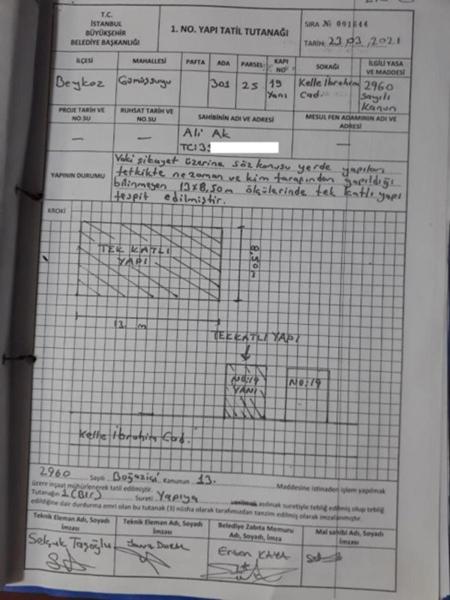 T.C.
İSTANBUL
BÜYÜKŞEHİR
BELEDİYE BAŞKANLIĞI
1. NO. YAPI TATİL TUTANAĞI
SIRA №
TARİH: 23.03.2021
İLÇESİ MAHALLESİ PAFTA ADA PARSEL KAPI NO SOKAĞI İLGİLİ YASA VE MADDESİ
Beykoz Gümüşsuyu 301 25 19 Yanı Kelle İbrahim Cad. 2960 Sayılı Kanun
PROJE TARİH VE NO.SU RUHSAT TARİH VE NO.SU SAHİBİNİN ADI VE ADRESİ MESUL FEN ADAMININ ADI VE ADRESİ
— — Ali Ak —
TC:13
YAPININ DURUMU
Vaki şikayet üzerine söz konusu yerde yapılan
tetkikte ne zaman ve kim tarafından yapıldığı
bilinmeyen 13x8,50m ölçülerinde tek katlı yapı
tespit edilmiştir.
KROKİ
TEK KATLI
YAPI
8.50m
13. m
TEK KATLI YAPI
NO:19
YANI
NO:19
Kelle İbrahim Cad.
2960 Sayılı Boğaziçi Kanunun 13. Maddesine istinaden işlem yapılmak
üzere inşaat mühürlenerek tatil edilmiştir.
Tutanağın 1 (Bir) Sureti Yapıya asılmak suretiyle tebliğ edilmiş olup tebliğ
edildiğine dair durdurma emri olan bu tutanak (3) nüsha olarak tarafımızdan tanzim edilmiş olarak imzalanmıştır.
Teknik Eleman Adı, Soyadı İmzası
Teknik Eleman Adı, Soyadı İmzası
Belediye Zabıta Memuru Adı, Soyadı, İmza
Mal sahibi Adı, Soyadı İmzası
Selçuk Taşoğlu
Ercan KAYA